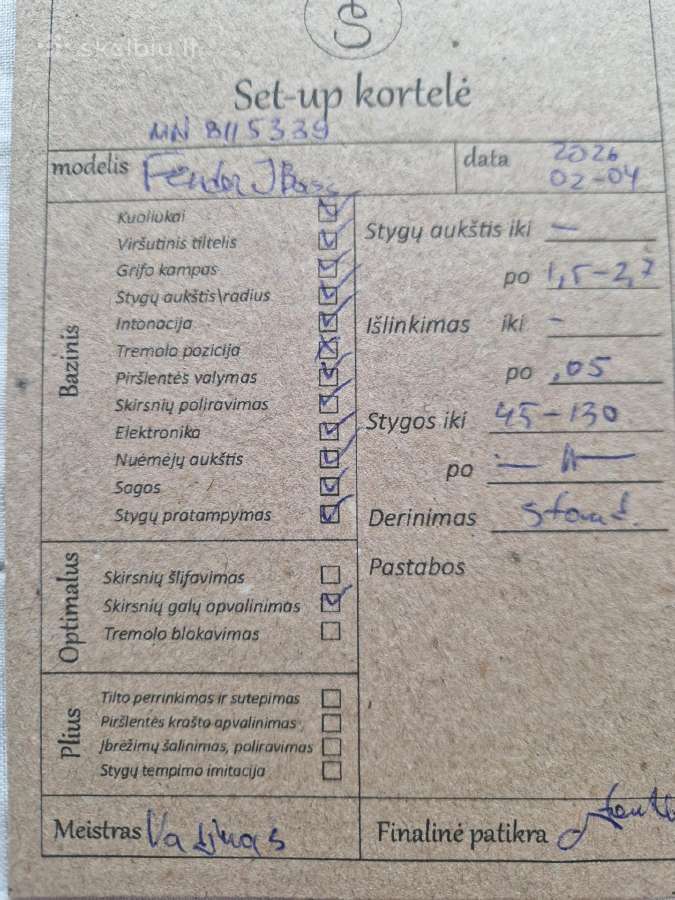 skelbiu.lt
S
Set-up kortelė
MN 8115339
modelis Fender J Bass
data 2026
02-04
Bazinis
Kuoliukai
Viršutinis tiltelis
Grifo kampas
Stygų aukštis\radius
Intonacija
Tremolo pozicija
Piršlentės valymas
Skirsnių poliravimas
Elektronika
Nuėmėjų aukštis
Sagos
Stygų pratampymas
Stygų aukštis iki —
po 1,5-2,7
Išlinkimas iki -
po ,05
Stygos iki 45-130
po — 11 —
Derinimas stand.
Pastabos
Optimalus
Skirsnių šlifavimas
Skirsnių galų apvalinimas
Tremolo blokavimas
Plius
Tilto perrinkimas ir sutepimas
Piršlentės krašto apvalinimas
Įbrėžimų šalinimas, poliravimas
Stygų tempimo imitacija
Meistras
Finalinė patikra